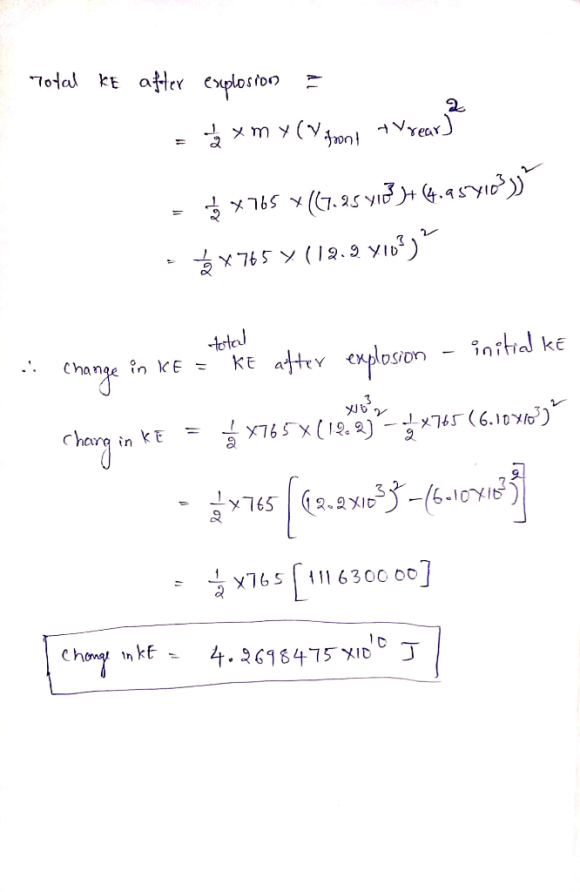 Total KE after explosion =
= 1/2 × m × (V front + V rear)²
= 1/2 × 765 × ((7.25 × 10³) + (4.95 × 10³))²
= 1/2 × 765 × (12.2 × 10³)²
∴ change in KE = total KE after explosion - initial KE
charg in KE = 1/2 × 765 × (12.2 × 10³)² - 1/2 × 765 (6.10 × 10³)²
= 1/2 × 765 [(12.2 × 10³)² - (6.10 × 10³)²]
= 1/2 × 765 [111630000]
Change in KE = 4.2698475 × 10¹⁰ J